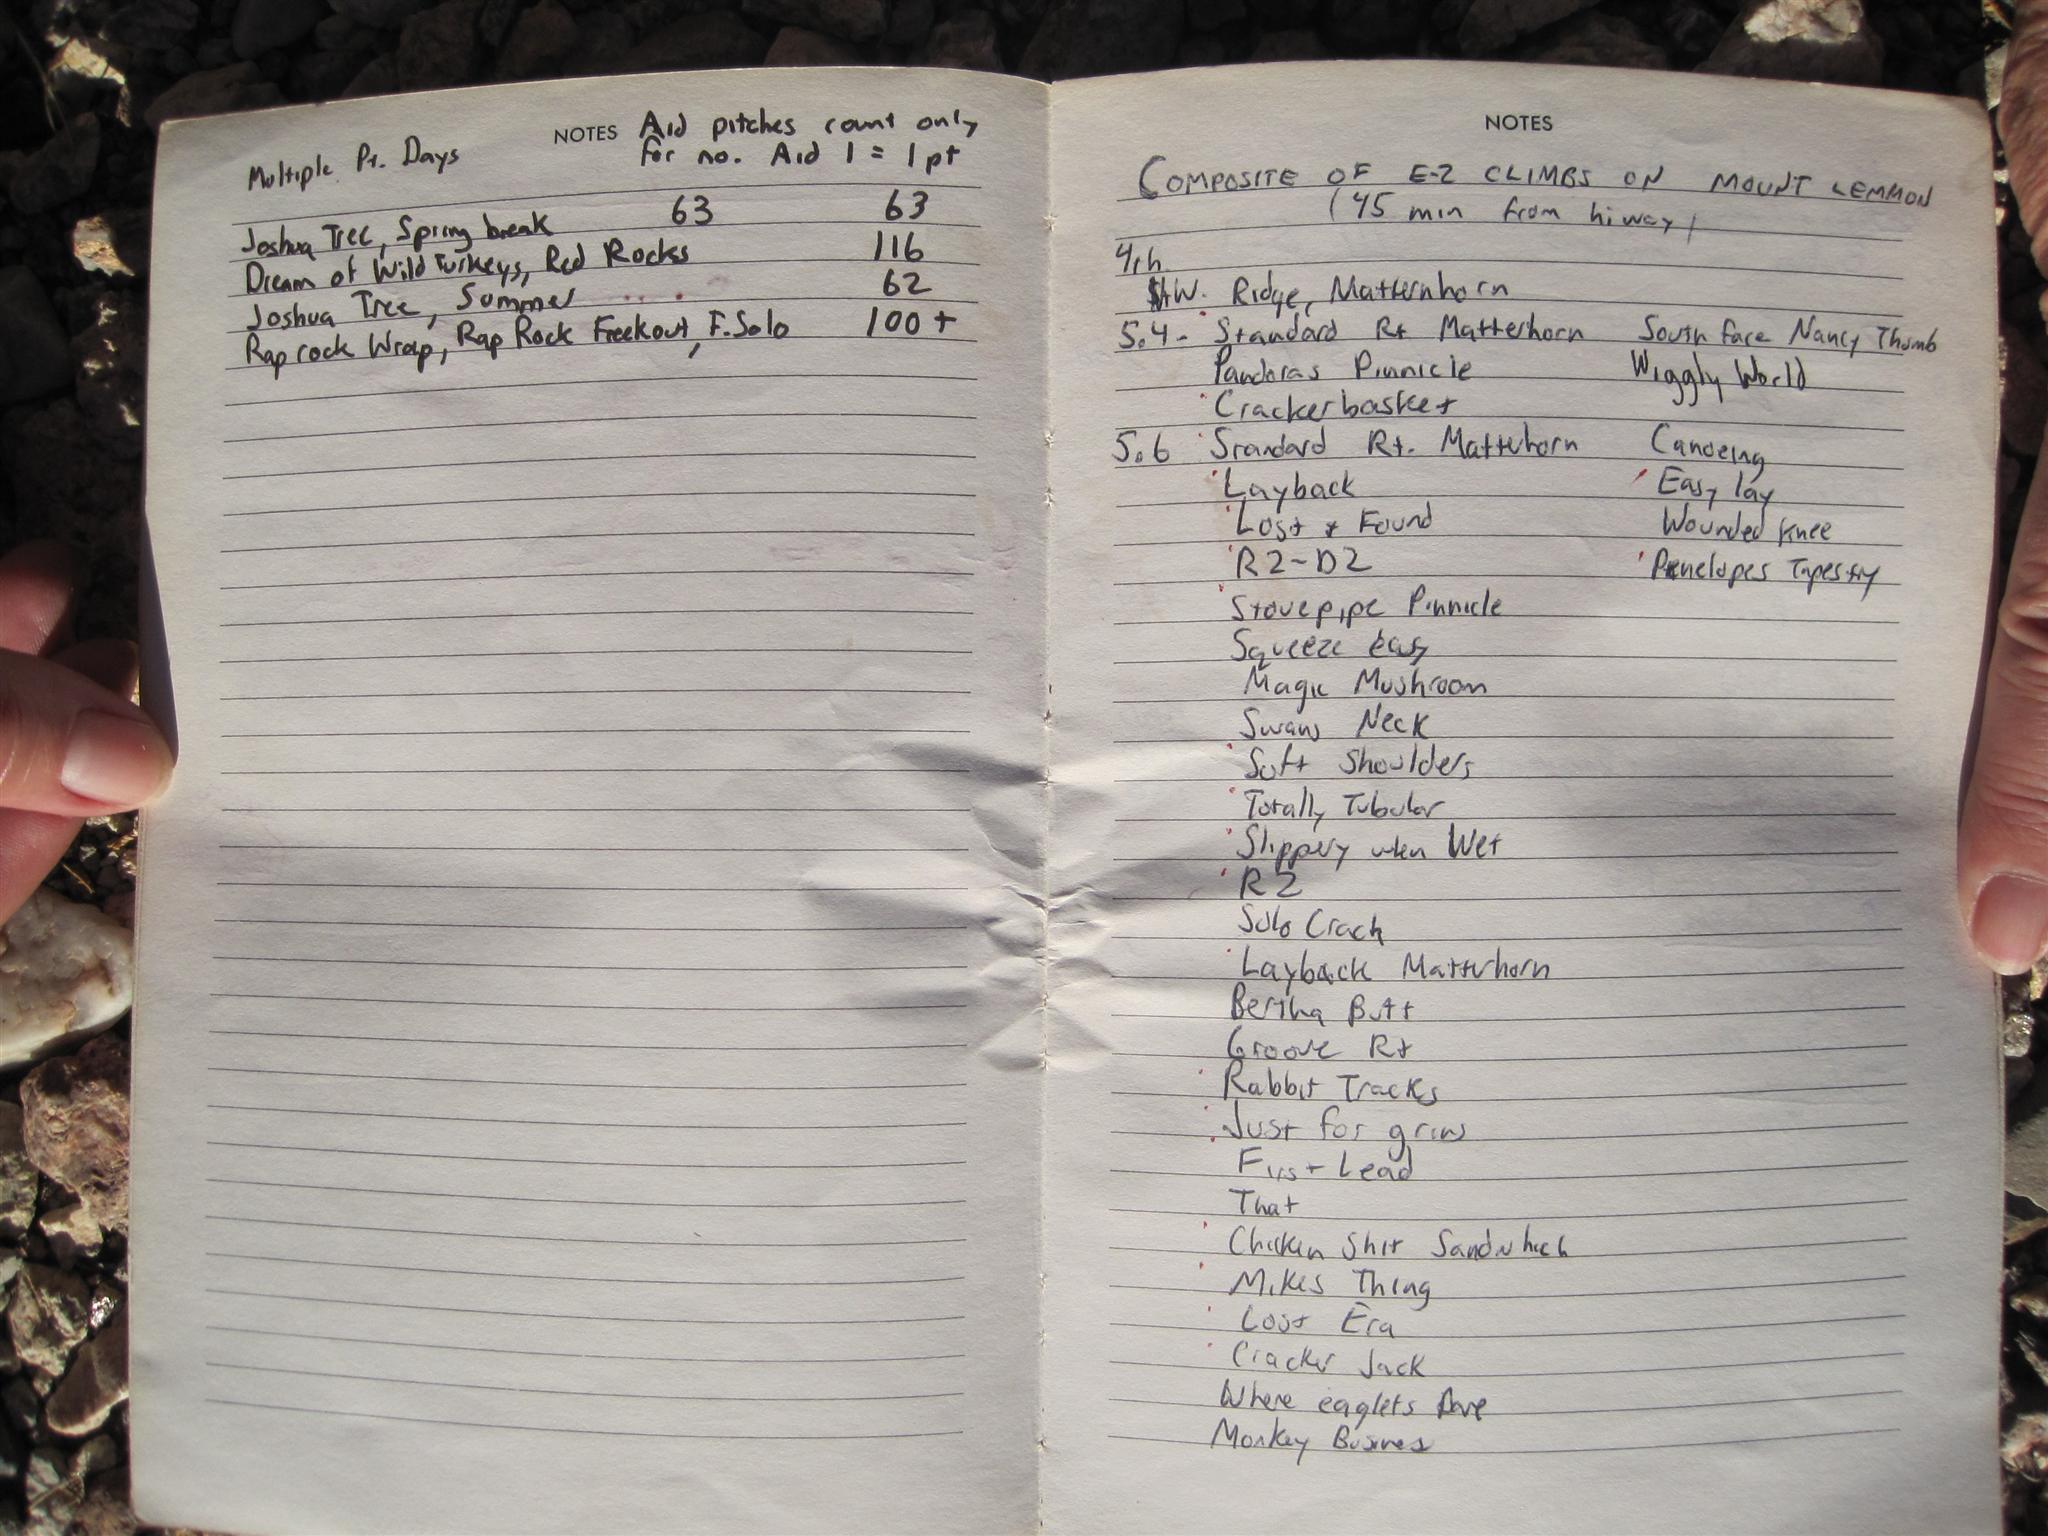 NOTES Aid pitches count only
for no. Aid 1 = 1 pt
Multiple Pt. Days
Joshua Tree, Spring break 63 63
Dream of Wild Turkeys, Red Rocks 116
Joshua Tree, Summer 62
Rap rock Wrap, Rap Rock Freekout, F. Solo 100+
NOTES
COMPOSITE OF E-Z CLIMBS ON MOUNT LEMMON
(45 min from hiway)
4th
W. Ridge, Matternhorn
5.4 - Standard Rt Matterhorn South face Nancy Thumb
Pandoras Pinnicle Wiggly World
Crackerbasket
5.6 Standard Rt. Matterhorn Canoeing
Layback Easy lay
Lost & Found Wounded Knee
R2-D2 Penelopes Tapestry
Stovepipe Pinnicle
Squeeze easy
Magic Mushroom
Swans Neck
Soft Shoulders
Totally Tubular
Slippery when Wet
R2
Solo Crack
Layback Matterhorn
Bertha Butt
Groove Rt
Rabbit Tracks
Just for grins
First Lead
That
Chicken Shit Sandwhich
Mikes Thing
Lost Era
Cracker Jack
Where eaglets Dare
Monkey Business